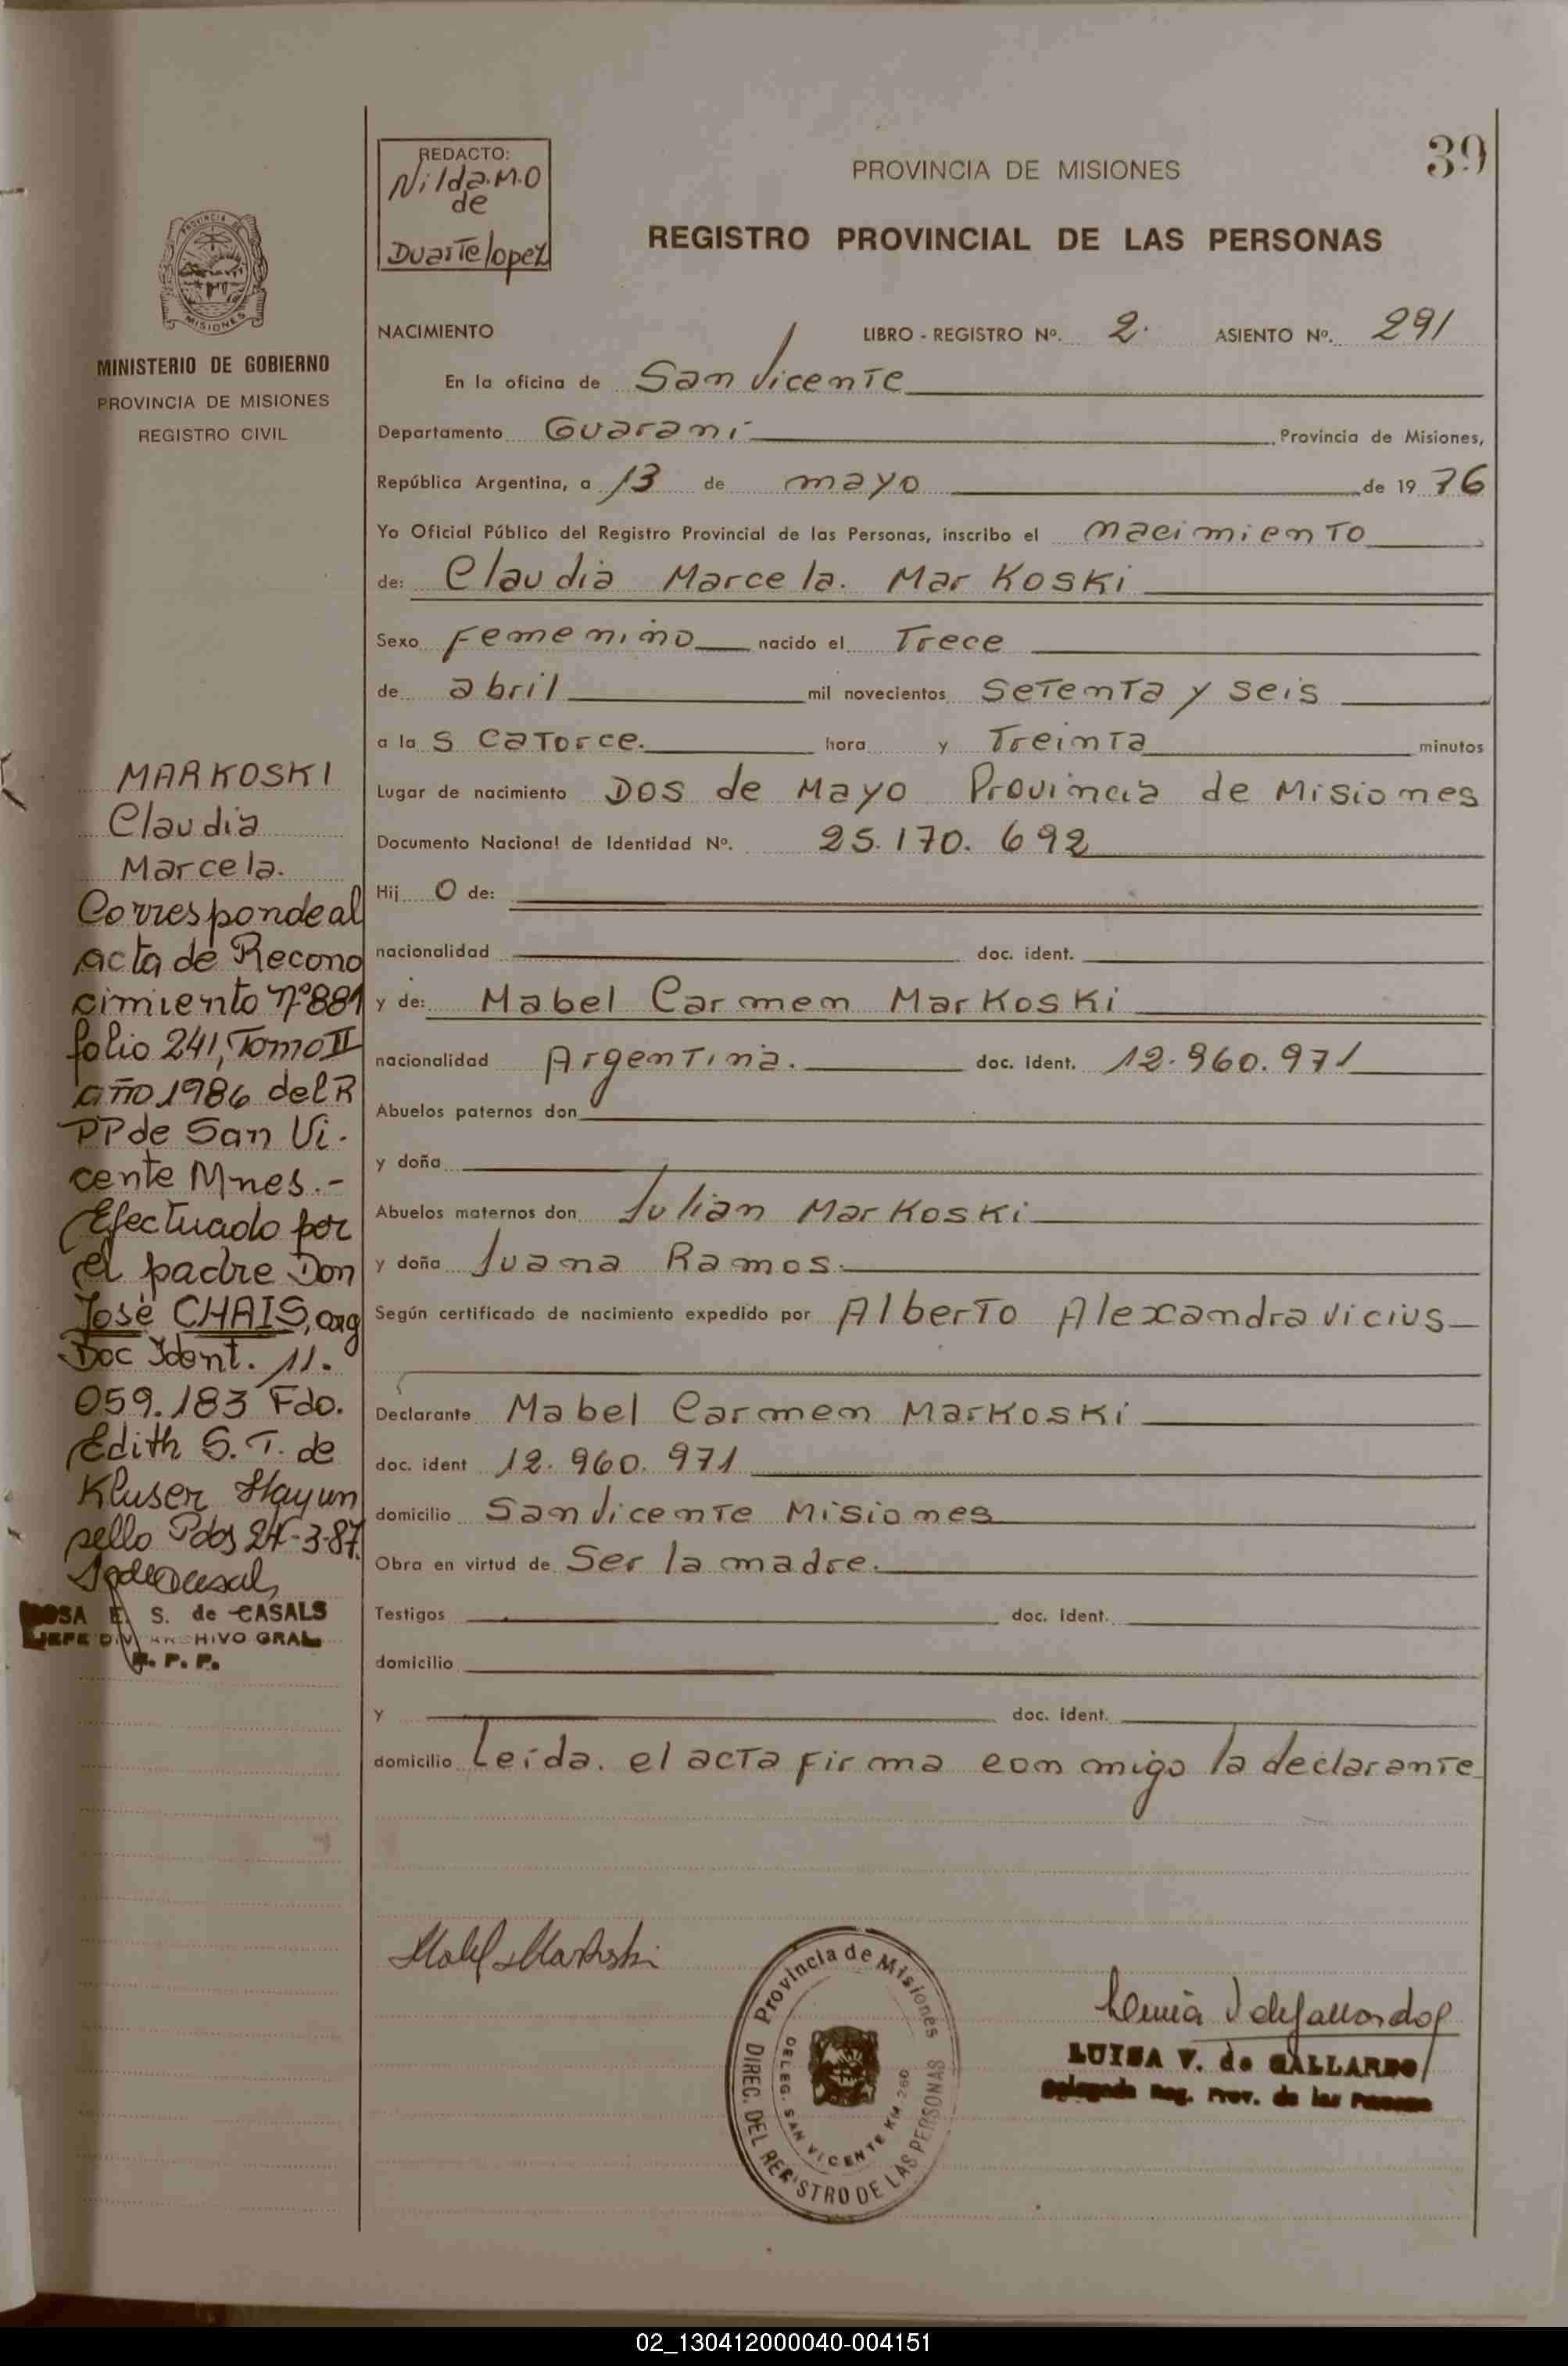 39
REDACTO:
Nilda.M.O
de
Duarte lopez
PROVINCIA DE MISIONES
REGISTRO PROVINCIAL DE LAS PERSONAS
PROVINCIA DE
MISIONES
MINISTERIO DE GOBIERNO
PROVINCIA DE MISIONES
REGISTRO CIVIL
NACIMIENTO LIBRO - REGISTRO Nº. 2. ASIENTO Nº. 291
En la oficina de San Vicente
Departamento Guaraní Provincia de Misiones,
República Argentina, a 13 de mayo de 1976
Yo Oficial Público del Registro Provincial de las Personas, inscribo el nacimiento
de: Claudia Marcela. Markoski
Sexo Femenino nacido el Trece
de abril mil novecientos setenta y seis
a la s catorce. hora y Treinta minutos
Lugar de nacimiento Dos de Mayo Provincia de Misiones
Documento Nacional de Identidad Nº. 25.170.692
Hij o de:
nacionalidad doc. ident.
y de: Mabel Carmen Markoski
nacionalidad Argentina. doc. ident. 12.960.971
Abuelos paternos don
y doña
Abuelos maternos don Julian Markoski
y doña Juana Ramos.
Según certificado de nacimiento expedido por Alberto Alexandravicius
Declarante Mabel Carmen Markoski
doc. ident 12.960.971
domicilio San Vicente Misiones
Obra en virtud de Ser la madre.
Testigos doc. ident.
domicilio
y doc. ident.
domicilio Leída. el acta firma conmigo la declarante
MARKOSKI
Claudia
Marcela.
Corresponde al
acta de Recono
cimiento Nº 881
folio 241, Tomo II
año 1986 del R
PP de San Vi-
cente Mnes.-
Efectuado por
el padre Don
José CHAIS, arg
Doc Ident. 11.
059.183 Fdo.
Edith S. T. de
Kluser Hay un
sello Pdos 24-3-87.
ROSA E. S. de CASALS
JEFE DIV ARCHIVO GRAL
R. P. P.
Mabel Markoski
Provincia de Misiones
DIREC. DEL REGISTRO DE LAS PERSONAS
DELEG. SAN VICENTE KM. 260
LUISA V. de GALLARDO
Delegada Reg. Prov. de las Personas
02_130412000040-004151